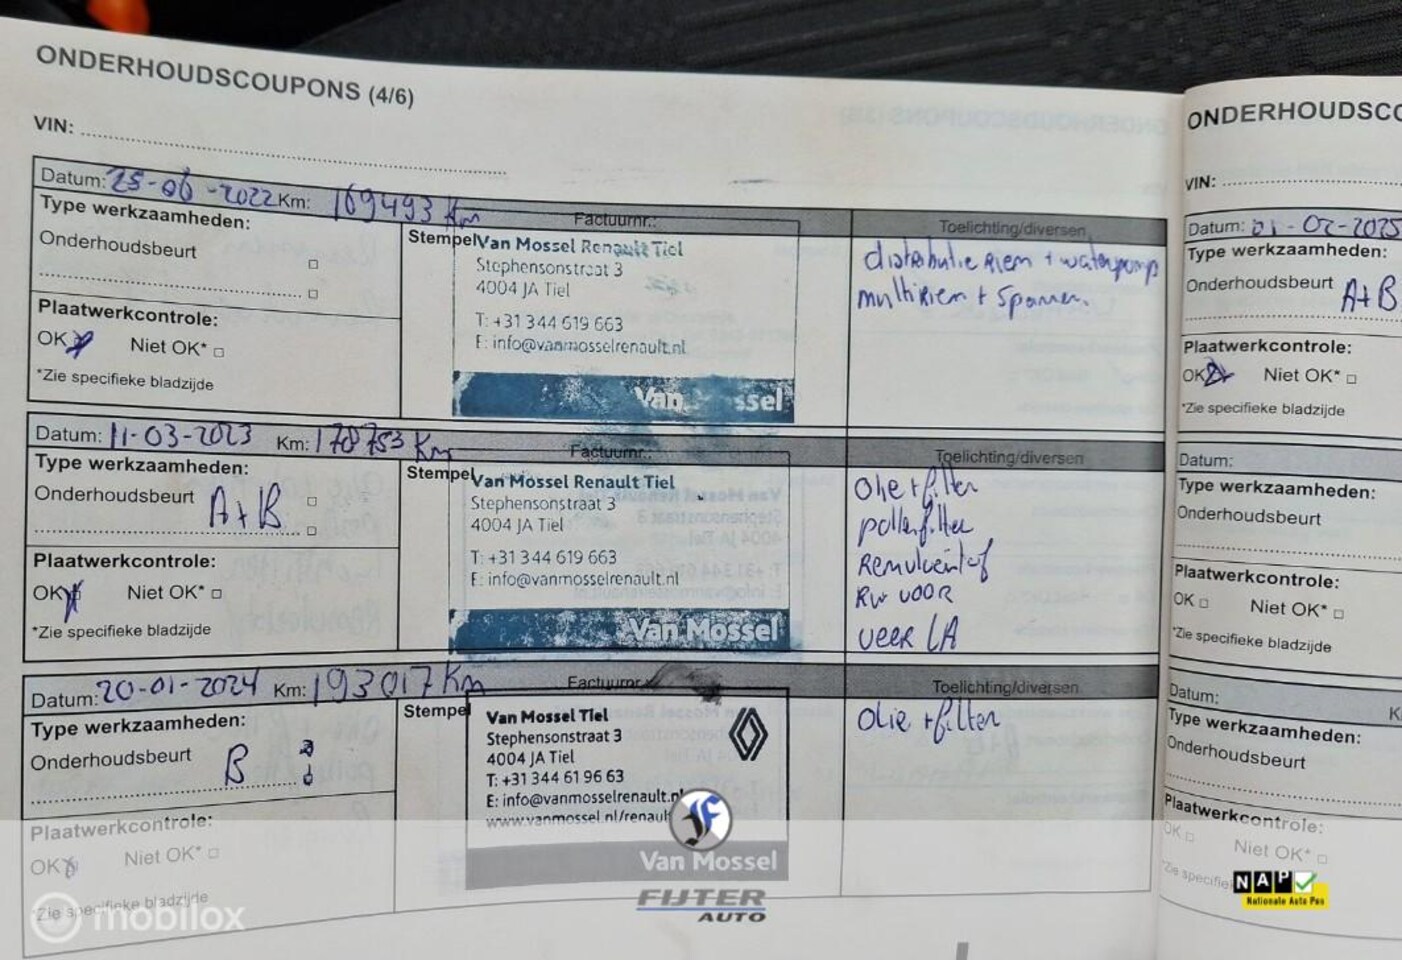 ONDERHOUDSCOUPONS (4/6)
VIN:
Datum: 25-06-2022 Km: 169493 Km Factuurnr.:
Toelichting/diversen
Type werkzaamheden:
Onderhoudsbeurt
Plaatwerkcontrole:
OK Niet OK*
*Zie specifieke bladzijde
Stempel
Van Mossel Renault Tiel
Stephensonstraat 3
4004 JA Tiel
T: +31 344 619 663
E: info@vanmosselrenault.nl
Van ssel
distributie riem + waterpomp
multiriem + spanner.
Datum: 11-03-2023 Km: 178753 Km Factuurnr.:
Toelichting/diversen
Type werkzaamheden:
Onderhoudsbeurt A+B
Plaatwerkcontrole:
OK Niet OK*
*Zie specifieke bladzijde
Stempel
Van Mossel Renault Tiel
Stephensonstraat 3
4004 JA Tiel
T: +31 344 619 663
E: info@vanmosselrenault.nl
Van Mossel
olie+filter
pollenfilter
Remvloeistof
RW VOOR
veer LA
Datum: 20-01-2024 Km: 193017 Km Factuurnr.
Toelichting/diversen
Type werkzaamheden:
Onderhoudsbeurt B
Plaatwerkcontrole:
OK Niet OK*
*Zie specifieke bladzijde
Stempel
Van Mossel Tiel
Stephensonstraat 3
4004 JA Tiel
T: +31 344 61 96 63
E: info@vanmosselrenault.nl
www.vanmossel.nl/renaul
Van Mossel
olie +filter
ONDERHOUDSCO
VIN:
Datum: 01-02-2025
Type werkzaamheden:
Onderhoudsbeurt A+B
Plaatwerkcontrole:
OK Niet OK*
*Zie specifieke bladzijde
Datum:
Type werkzaamheden:
Onderhoudsbeurt
Plaatwerkcontrole:
OK Niet OK*
*Zie specifieke bladzijde
Datum: K
Type werkzaamheden:
Onderhoudsbeurt
Plaatwerkcontrole:
OK Niet OK*
*Zie specifie
mobilox
FIJTER
AUTO
NAP
Nationale Auto Pas